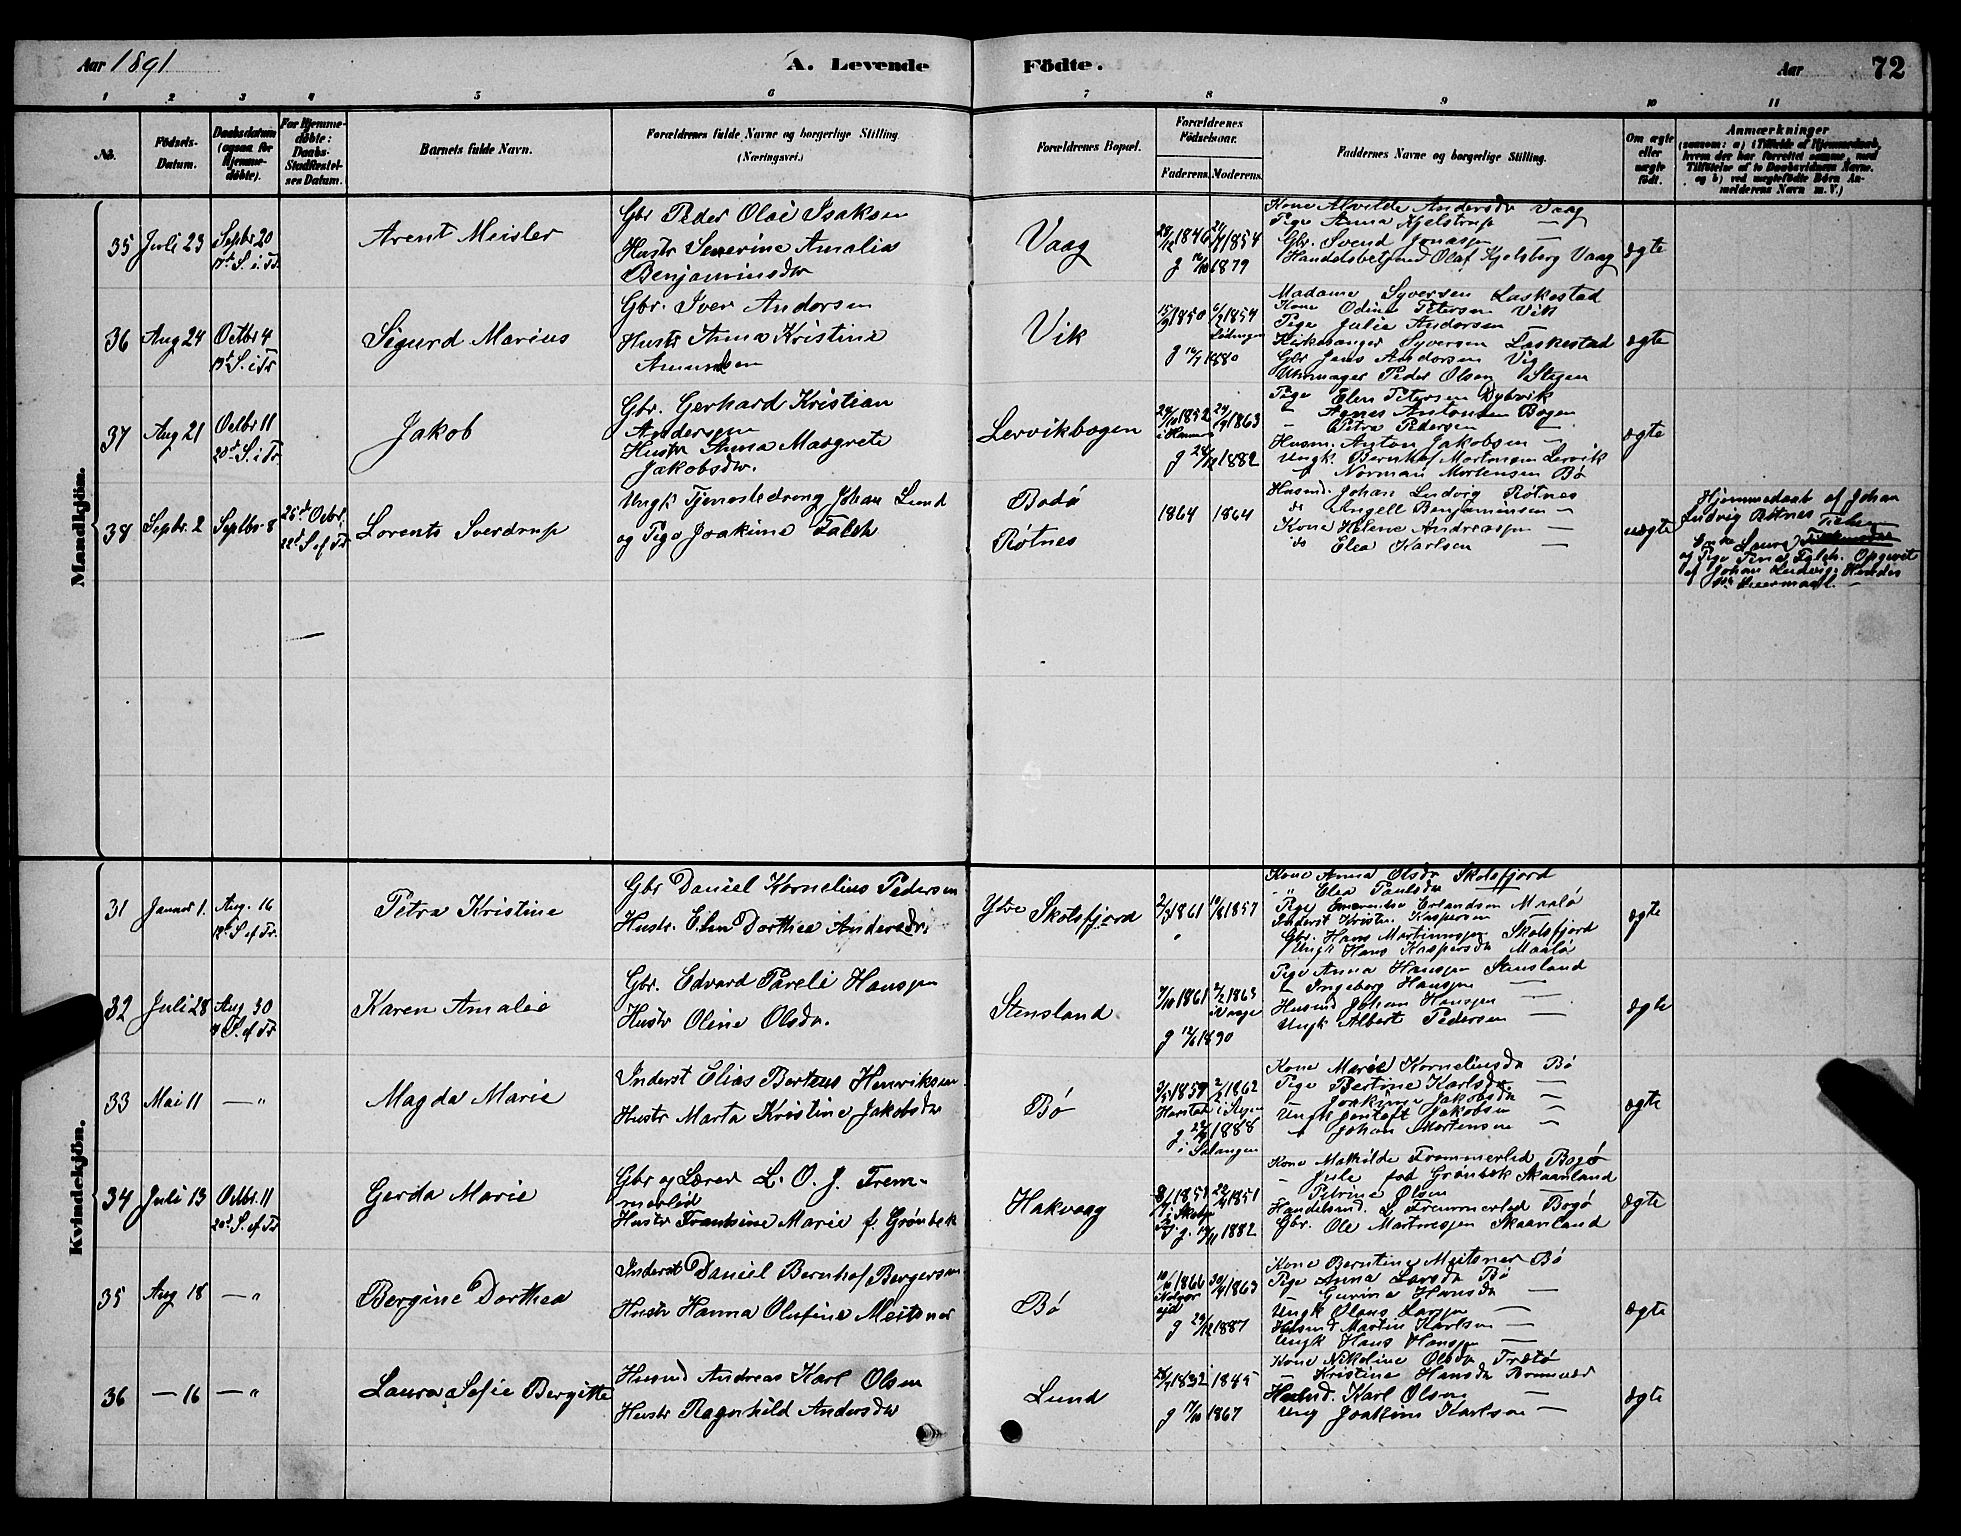 Aar 1891
A. Levende
Födte.
Aar
72
1 2 3 4 5 6 7 8 9 10 11
No.
Födsels-Datum.
Daabsdatum (ogsaa for Hjemme-döbte).
For Hjemme-döbte: Daabs-Stadfæstel-ses Datum.
Barnets fulde Navn.
Forældrenes fulde Navne og borgerlige Stilling (Næringsvei.)
Forældrenes Bopæl.
Forældrenes Födselsaar.
Faderens. Moderens.
Faddernes Navne og borgerlige Stilling.
Om ægte eller uægte födt.
Anmærkninger
Mandkjön.
35 Juli 23 Septbr 20 Arent Meisler
17de S. i Tr
Gbr Peder Olai Isaksen
Hustr Severine Amalia
Benjaminsdr
Vaag
28/12 1846 1854
g 1879
Kone Alvilde Andersdr Vaag
Pige Anna Kjelstrup —
Gbr. Svend Jonassen —
Handelsbetj Olaf Kjelsberg Vaag
ægte
36 Aug 24 Octbr 4 Sigurd Marius
19de S. i Tr
Gbr. Iver Andorsen
Hustr Anna Kristine
Amundsen
Vik
1850 1854
Lødingen
g 1880
Madame Syversen Laskestad
Kone Odine Petersen Vik
Pige Julie Andorsen
Kirkesanger Syversen Laskestad
Gbr Jens Andorsen Vig
Uhrmager Peder Olsen Stegen
ægte
37 Aug 21 Octbr 11 Jakob
20de S. i Tr
Gbr. Gerhard Kristian
Andersen
Hustr Anna Margrete
Jakobsdr.
Lervikbogen
1852 1863
g 1882
Pige Elen Petersen Dybvik
" Agnes Antonsen Bogen
" Petra Pedersen —
Husm. Anton Jakobsen —
Ungk. Bernhof Mortensen Lervik
" Norman Mortensen Bø
ægte
38 Septbr. 2 Septbr 8 25de Octbr. Lorents Sverdrup
22de S. ef Tr
Ungk Tjenestedreng Johan Lund
og Pige Joakime Falch
Bodø
Røtnes
1864 1864
Husmd. Johan Ludvig Røtnes
do Engell Benjaminsen —
Kone Helene Andreassen —
do Elea Karlsen —
uægte
Hjemmedaab af Johan
Ludvig Røtnes
og Pige Tina Falch. Opgivet
af Johan Ludvig.
Leiermaal. —
Kvindekjön.
31 Januar 1. Aug. 16 Petra Kristine
12te S. ef Tr.
Gbr Daniel Kornelius Pedersen
Hustr. Elen Dorthea Andersdr.
Ytre Skotsfjord
1861 1857
Kone Anna Olsdr Skotsfjord
" Elea Paulsdr —
Pige Emerentse Erlandsen Maalø
Inderst Kristen Kaspersen
Gbr. Hans Martinussen Skotsfjord
Ungk Hans Kaspersdr Maalø
ægte
32 Juli 28 Aug. 30 Karen Amalie
S. ef Tr
Gbr. Edvard Pareli Hanssen
Hustr Oline Olsdr.
Stensland
1861 1863
g 1890
Pige Anna Hanssen Stensland
" Ingeborg Hanssen —
Husmd Johan Hanssen —
Ungk Albert Pedersen —
ægte
33 Mai 11 — " Magda Marie
Inderst Elias Berteus Henriksen
Hustr Marta Kristine Jakobsdr
Bø
1859 1862
g. 1888
i Salangen
Kone Marie Korneliusdr Bø
Pige Bertine Karlsdr —
" Joakime Jakobsdr —
Ungk Gentoft Jakobsen —
" Johan Mortensen —
ægte
34 Juli 13 Octbr. 11 Gerda Marie
20de S. ef Tr
Gbr og Lærer L. O. J. Frem-
merlid
Hustr Frantsine Marie f. Grønbek
Hakvaag
1851 1851
g. 1882
Kone Mathilde Frammerlid Bogø
" Jule fød Grønbek Skaanland
" Petrine Olsen
Handelsmd. J Fremmerlid Bogø
Gbr. Ole Martinessen Skaanland
ægte
35 Aug 18 — " Bergine Dorthea
Inderst Daniel Bernhof Bergersen
Hustr Hanna Olufine Meitsner
Bø
1866 1863
g 29/12 1887
Kone Berntine Meitsner Bø
Pige Anna Larsdr Bø
" Gurina Hansdr —
Ungk Olaus Larssen —
Husmd Martin Karlsen —
Ungk Hans Hanssen —
ægte
36 — 16 — " Laura Sofie Bergitte
Husmd Andreas Karl Olsen
Hustr Ragnhild Andersdr
Lund
1832 1845
g 1867
Kone Nikoline Olsdr Trætø
" Kristine Hansdr
Husmd. Karl Olsen —
Ung Joakim Karlsen —
ægte